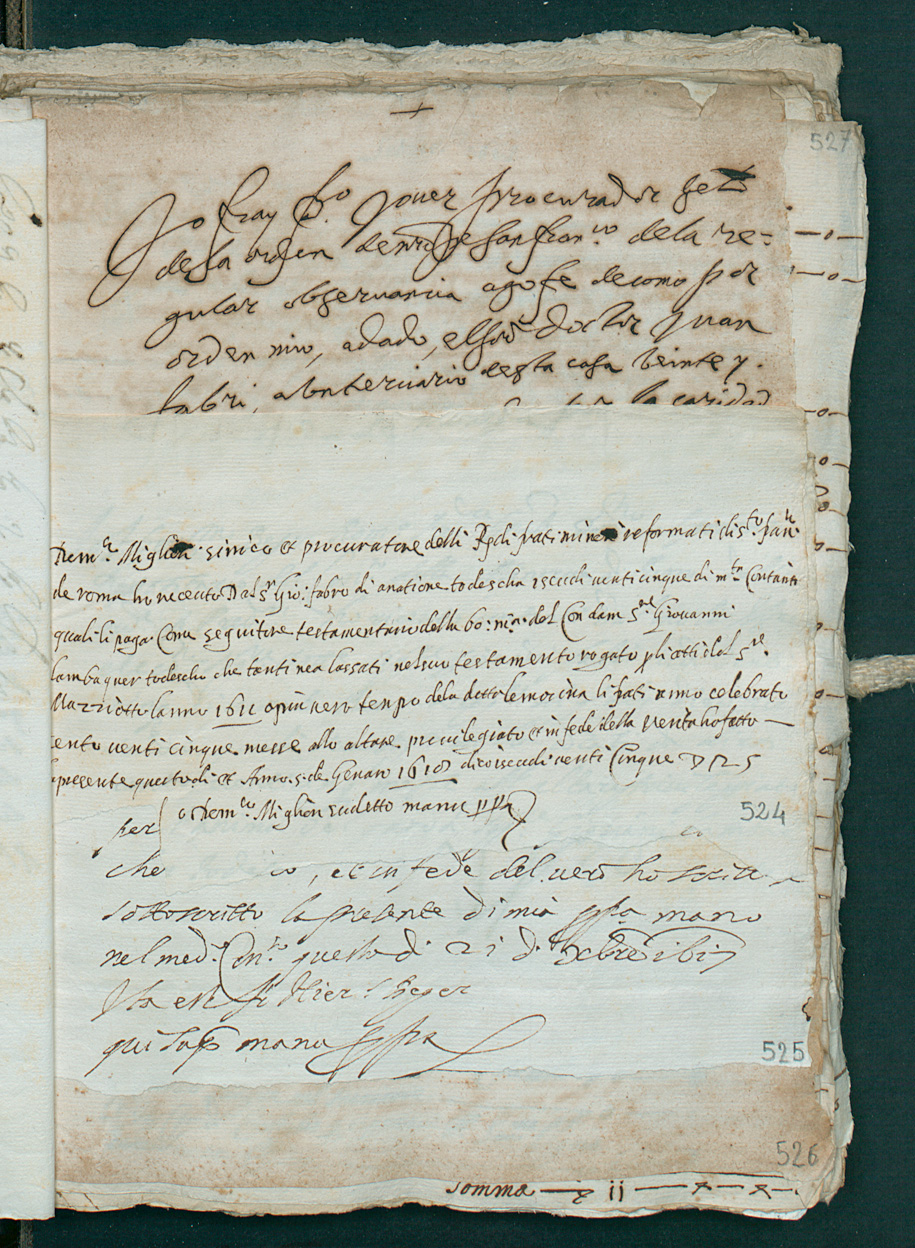 527
Yo fray Po Joner Procurador Genl
de la orden de nro Pe san franco de la re=
gular observancia, doy fe de como por
orden mio, a dado, el Sor Doctor Juan
fabri,
la caridad
Dem.co Miglieri sinico et procuratore delli Rpdi frati minori reformati di sto fran
de roma ho receuto Dal Sr Gio: fabro di anatione todescha iscudi venti cinque di mta Contanti
quali li paga Come seguitore testamentario della bo: ma del Con dam Sre Giovanni
lambaquer todescho che tanti nea lassati nel suo testamento rogato p li atti del Sre
Mazziotto lanno 1611 o piu vero tenpo dela detta lemocina li frati nimo celebrato
cento venti cinque messe allo altare previlegiato et in fede della verita ho fatto
presente questo di et Anno 5 de Genaro 1618 dico iscudi venti Cinque 25
o Dem.co Miglieri sudetto manu ppa
524
per
che io, et in fede del vero ho scritto
sottoscritto la presente di mia ppa mano
nel med. Con.to questo di 21 di Xbre 1617
Ita est
qui sup manu ppa
525
526
somma ii